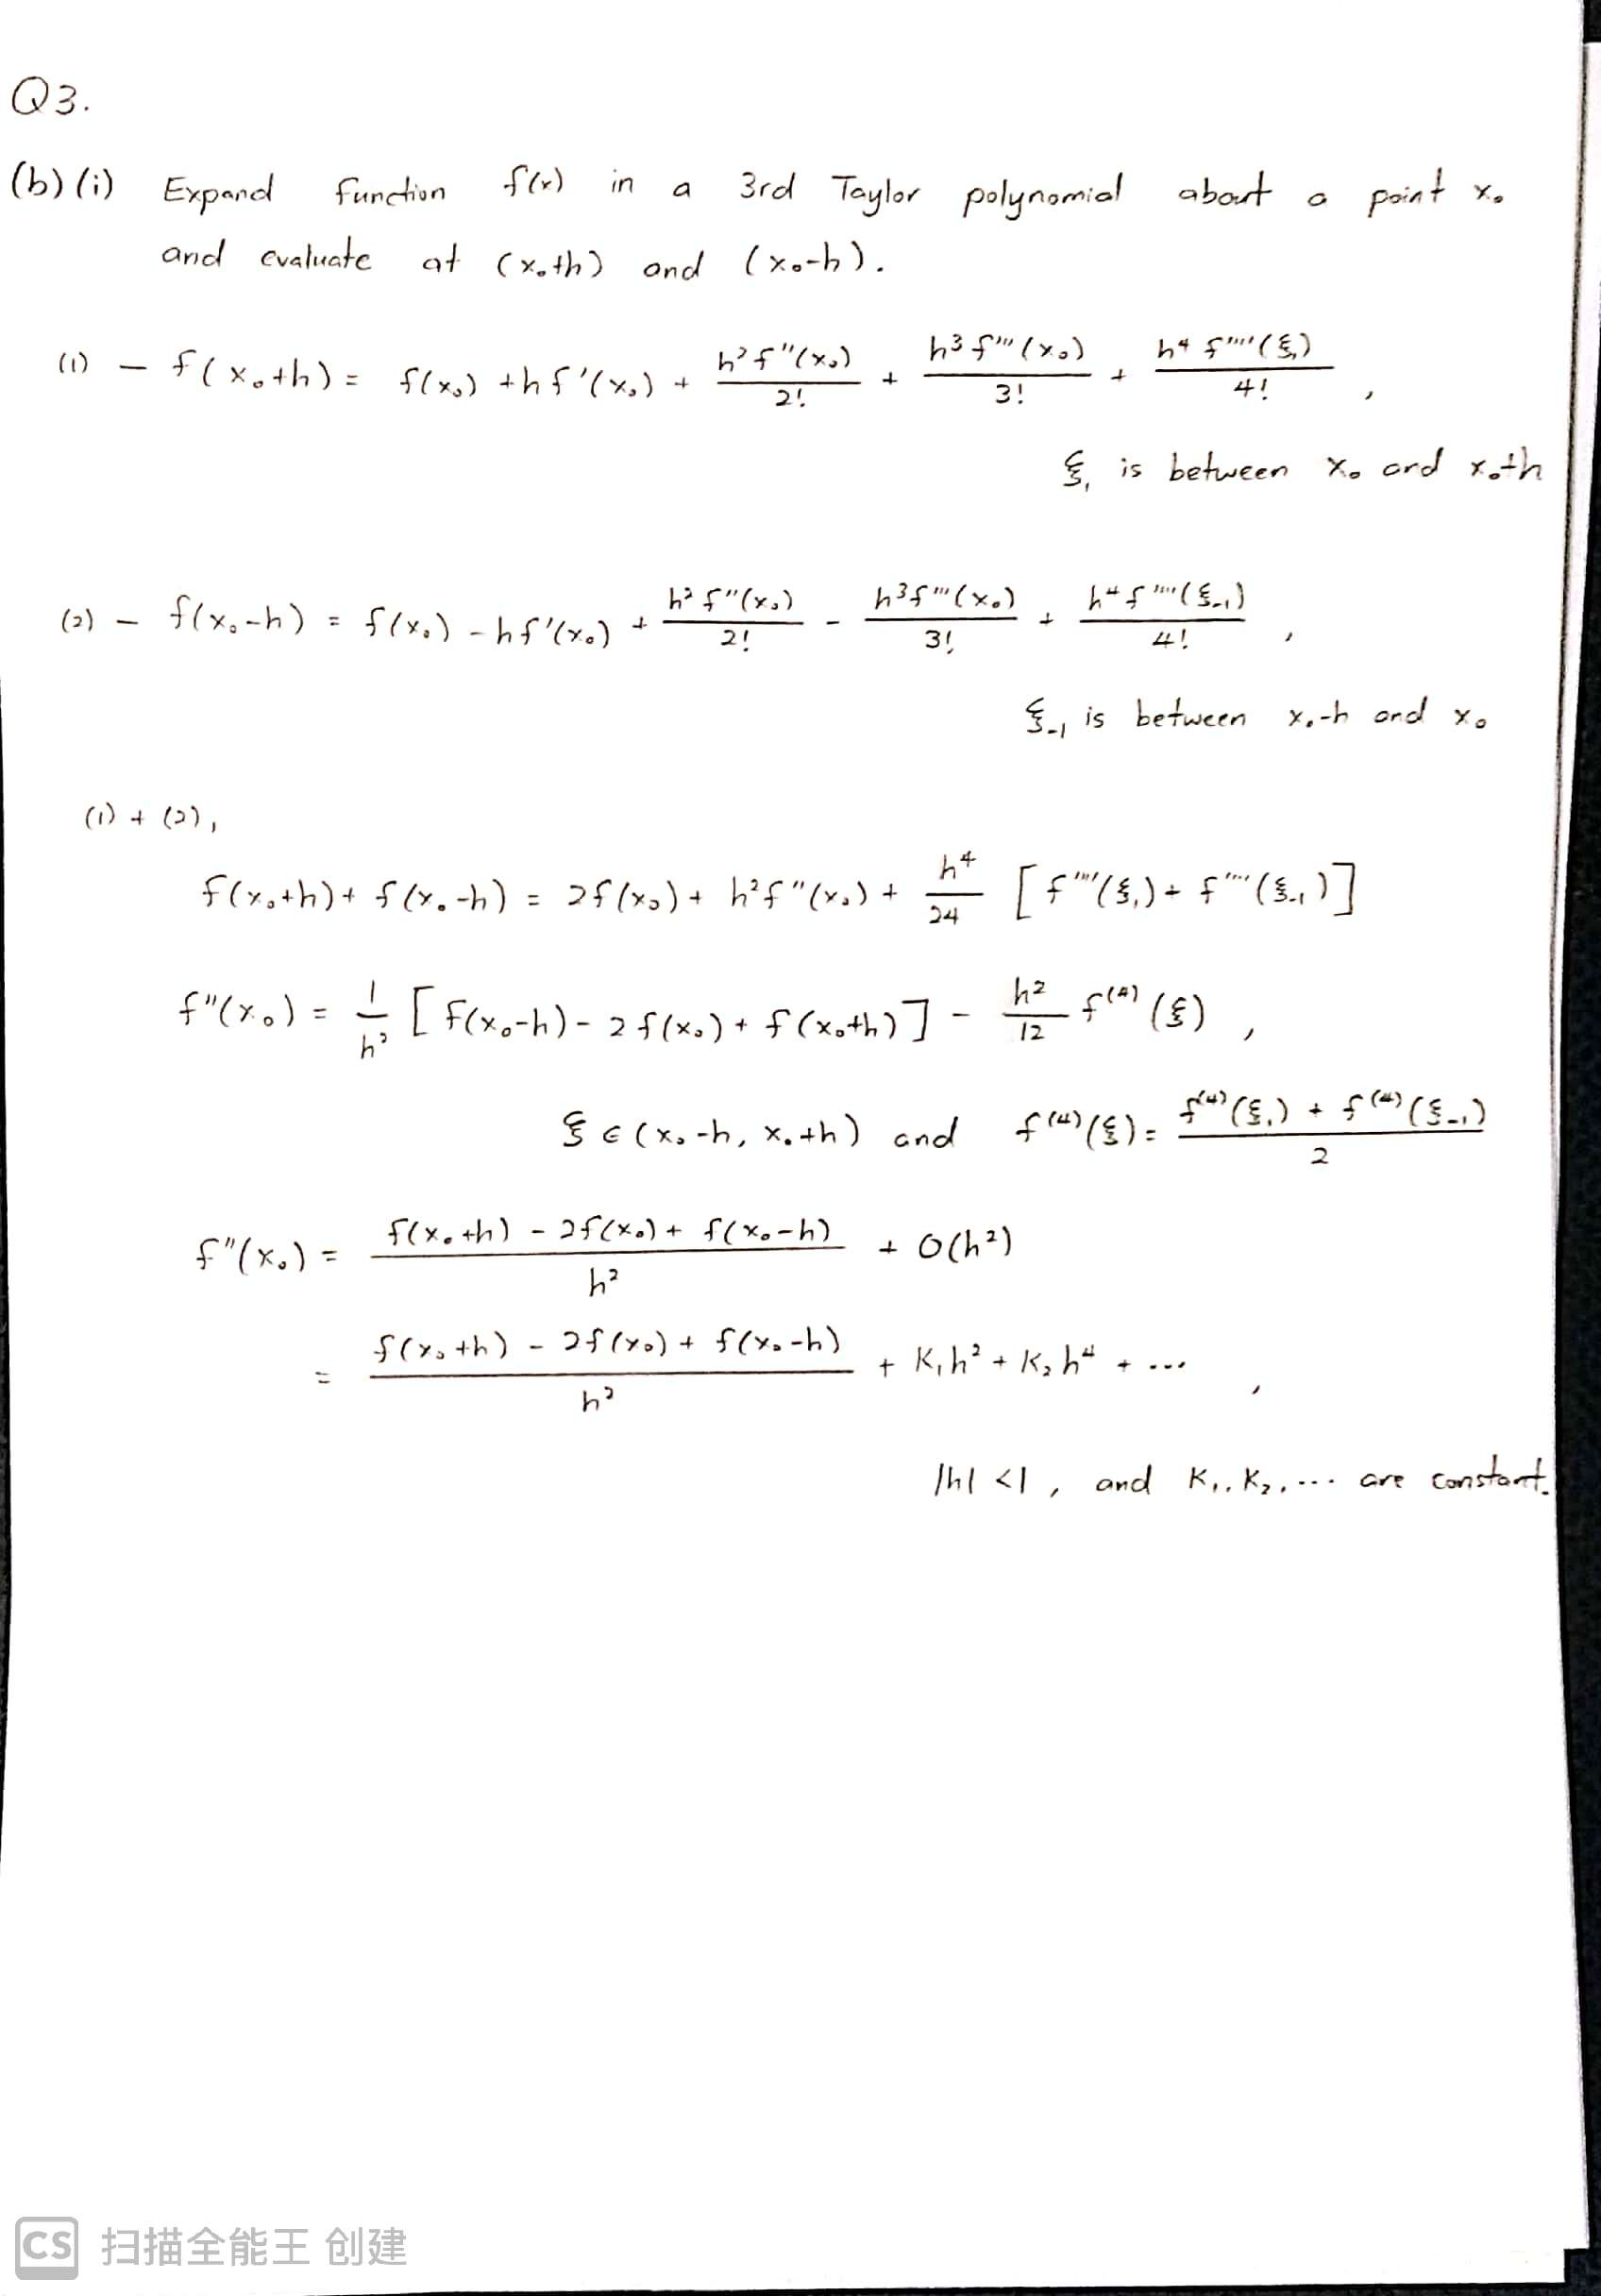 Q3.
(b) (i) Expand function f(x) in a 3rd Taylor polynomial about a point x₀
and evaluate at (x₀+h) and (x₀-h).
(1) — f(x₀+h) = f(x₀) + hf'(x₀) + h²f''(x₀)/2! + h³f'''(x₀)/3! + h⁴f''''(ξ₁)/4! ,
ξ₁ is between x₀ and x₀+h
(2) — f(x₀-h) = f(x₀) - hf'(x₀) + h²f''(x₀)/2! - h³f'''(x₀)/3! + h⁴f''''(ξ₋₁)/4! ,
ξ₋₁ is between x₀-h and x₀
(1) + (2),
f(x₀+h) + f(x₀-h) = 2f(x₀) + h²f''(x₀) + h⁴/24 [f''''(ξ₁) + f''''(ξ₋₁)]
f''(x₀) = 1/h² [f(x₀-h) - 2f(x₀) + f(x₀+h)] - h²/12 f⁽⁴⁾(ξ) ,
ξ ∈ (x₀-h, x₀+h) and f⁽⁴⁾(ξ) = f⁽⁴⁾(ξ₁) + f⁽⁴⁾(ξ₋₁)/2
f''(x₀) = f(x₀+h) - 2f(x₀) + f(x₀-h)/h² + O(h²)
= f(x₀+h) - 2f(x₀) + f(x₀-h)/h² + K₁h² + K₂h⁴ + ... ,
|h| <1 , and K₁, K₂, ... are constant.
CS 扫描全能王 创建